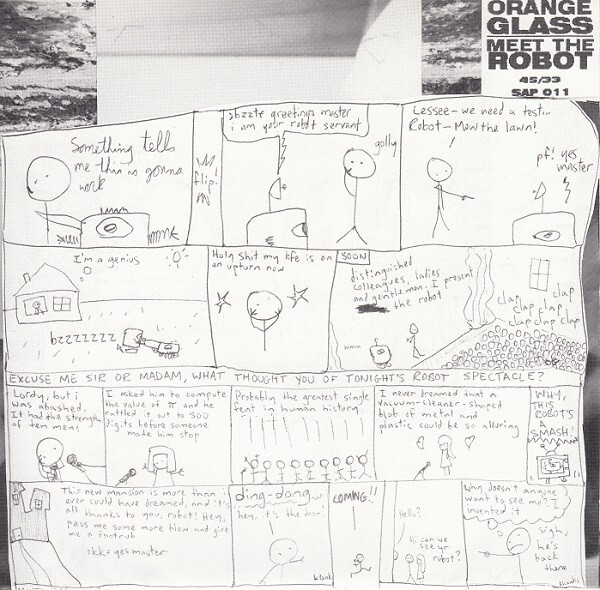 ORANGE
GLASS
MEET THE
ROBOT
45/33
SAP 011
Something tells
me this is gonna
work
flip!
zbzzte greetings master
i am your robot servant
golly
Lessee- we need a test...
Robot- Mow the lawn!
pf! yes
master
I'm a genius
bzzzzzzz
Holy shit my life is on
an upturn now
SOON
distinguished
colleagues, ladies
and gentlemen. I present
the robot
clap
clap
clap clap
clap clap clap
EXCUSE ME SIR OR MADAM, WHAT THOUGHT YOU OF TONIGHT'S ROBOT SPECTACLE?
Lordy, but i
was abashed.
It had the strength
of ten men!
I asked him to compute
the value of π and he
rattled it out to 500
digits before someone
made him stop
Probably the greatest single
feat in human history
I never dreamed that a
vacuum-cleaner-shaped
blob of metal and
plastic could be so alluring
WHY,
THIS
ROBOT'S
A
SMASH!
This new mansion is more than i
ever could have dreamed, and it's
all thanks to you, robot! Hey,
pass me some more blow and give
me a footrub
skk+ yes master
ding-dong
hey, it's the door!
COMING!!
Hello?
Hi can we
see yr
robot?
Why doesn't anyone
want to see me? I
invented it
sigh,
he's
back
there